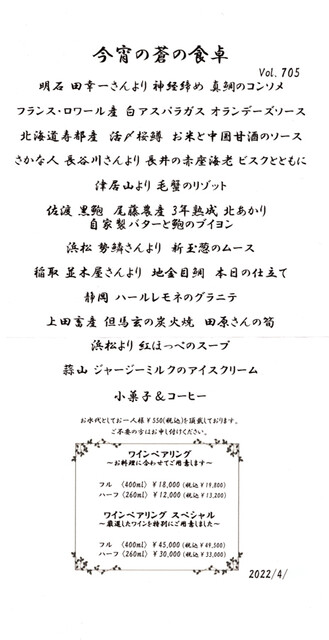 今宵の蒼の食卓
Vol. 705
明石 田幸一さんより 神経締め 真鯛のコンソメ
フランス・ロワール産 白アスパラガス オランデーズソース
北海道寿都産 活〆桜鱒 お米と中国甘酒のソース
さかな人 長谷川さんより 長井の赤座海老 ビスクとともに
津居山より 毛蟹のリゾット
佐渡 黒鮑 尾藤農産 3年熟成 北あかり
自家製バターと鮑のブイヨン
浜松 勢鱗さんより 新玉葱のムース
稲取 並木屋さんより 地金目鯛 本日の仕立て
静岡 ハールレモネのグラニテ
上田畜産 但馬玄の炭火焼 田原さんの筍
浜松より 紅ほっぺのスープ
蒜山 ジャージーミルクのアイスクリーム
小菓子&コーヒー
お水代としてお一人様¥550(税込)を頂戴しております。
ご不要の方はお申し付けください。
ワインペアリング
~お料理に合わせてご用意します~
フル 〈400ml〉 ¥18,000 (税込¥19,800)
ハーフ〈260ml〉 ¥12,000 (税込¥13,200)
ワインペアリング スペシャル
~厳選したワインを特別にご用意しました~
フル 〈400ml〉 ¥45,000 (税込¥49,500)
ハーフ〈260ml〉 ¥30,000 (税込¥33,000)
2022/4/